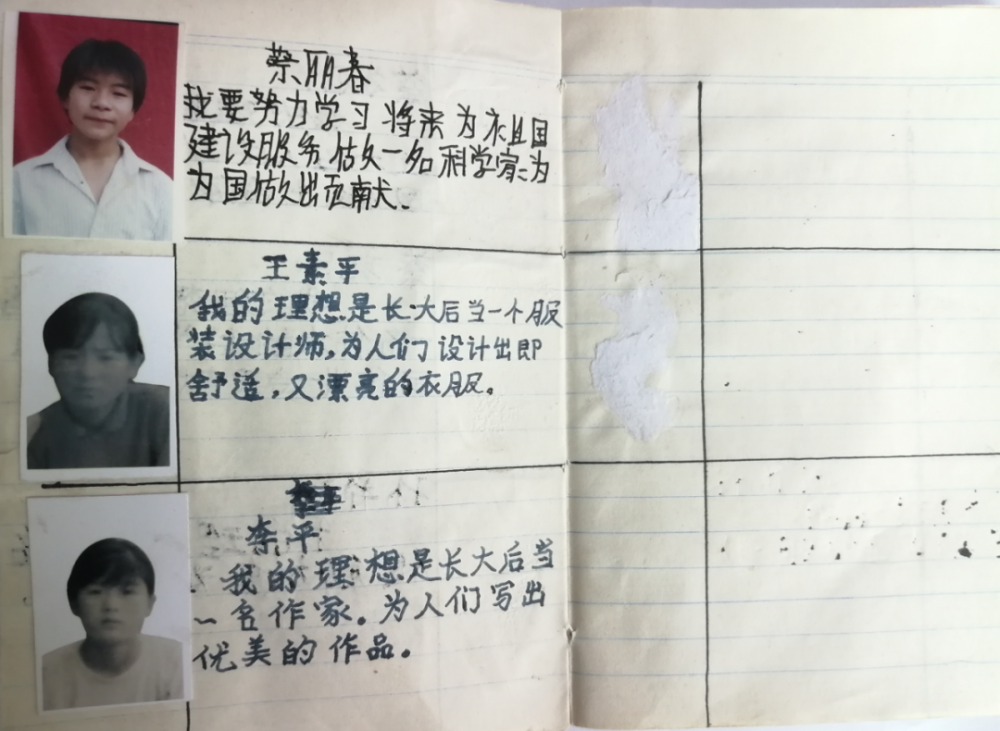 蔡丽春
我要努力学习将来为衣且国
建设服务做一名科学家为
为国做出贡献.
王素平
我的理想是长大后当一个服
装设计师,为人们设计出即
舒适,又漂亮的衣服。
李平
我的理想是长大后当
一名作家。为人们写出
优美的作品。